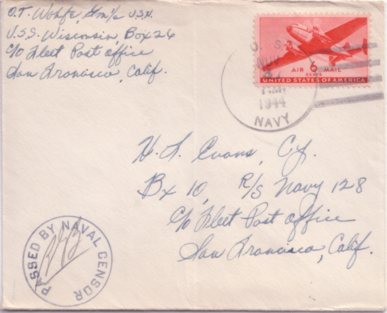 O.T. Wohfe, Gm1/c U.S.N.
U.S.S. Wisconsin, Box 26
C/o Fleet Post office
San Francisco, Calif.
U. S.
1944
NAVY
AIR MAIL
6
CENTS
UNITED STATES OF AMERICA
H. L. Evans, Cy.
Bx 10, R/S Navy 128
C/o Fleet Post office
San Francisco, Calif.
PASSED BY NAVAL CENSOR